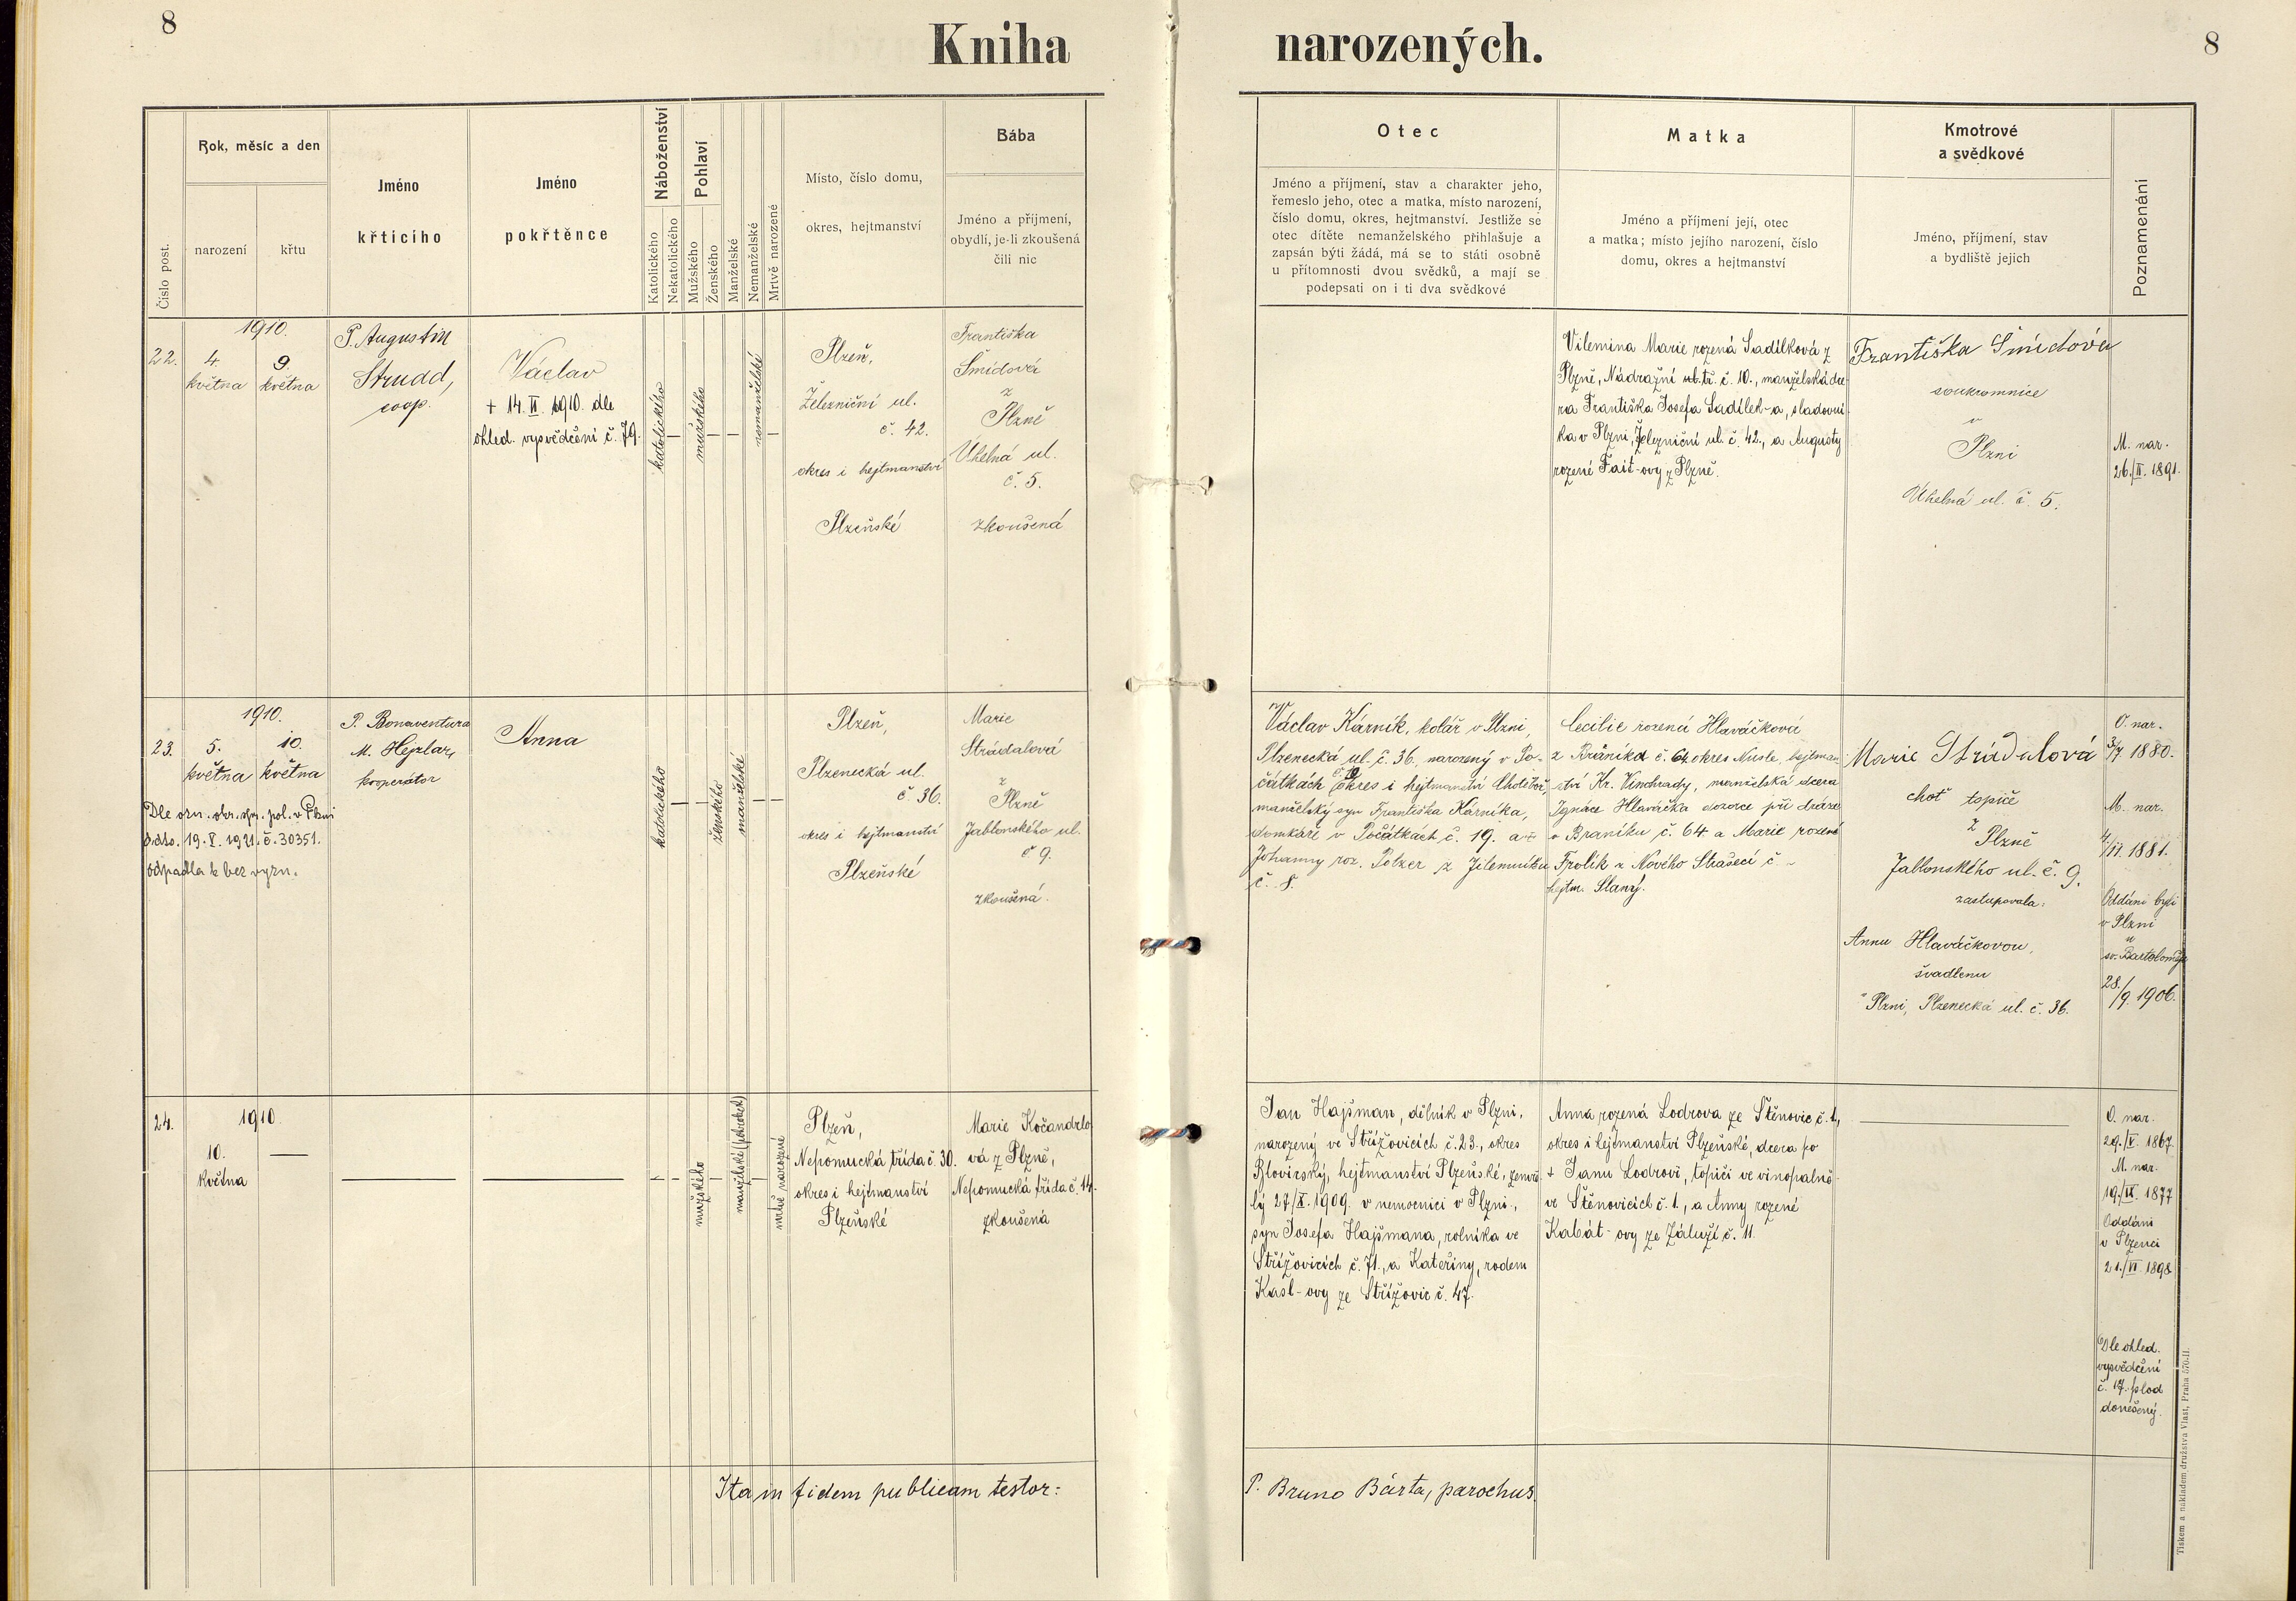 8
Kniha
narozených.
8
Číslo post.
Rok, měsíc a den
narození
křtu
Jméno
křticího
Jméno
pokřtěnce
Náboženství
Katolického
Nekatolického
Pohlaví
Mužského
Ženského
Manželské
Nemanželské
Mrtvě narozené
Místo, číslo domu,
okres, hejtmanství
Bába
Jméno a příjmení,
obydlí, je-li zkoušená
čili nic
Otec
Jméno a příjmení, stav a charakter jeho,
řemeslo jeho, otec a matka, místo narození,
číslo domu, okres, hejtmanství. Jestliže se
otec dítěte nemanželského přihlašuje a
zapsán býti žádá, má se to státi osobně
u přítomnosti dvou svědků, a mají se
podepsati on i ti dva svědkové
Matka
Jméno a příjmení její, otec
a matka; místo jejího narození, číslo
domu, okres a hejtmanství
Kmotrové
a svědkové
Jméno, příjmení, stav
a bydliště jejich
Poznamenání
22.
1910.
4. 9.
května května
P. Augustin
Strudd,
coop.
Václav
+ 14. II. 1910. dle
ohled. vysvědčení č. 79.
katolického
mužského
nemanželské
Plzeň,
Železniční ul.
č. 42.
okres i hejtmanství
Plzeňské
Františka
Šmídová
z
Plzně
Úhelná ul.
č. 5.
zkoušená
Vilemina Marie rozená Sadílková z
Plzně, Nádražní tř. č. 10., manželská dce-
ra Františka Josefa Sadílek-a, sladovní-
ka v Plzni, Železniční ul. č. 42., a Augusty
rozené Fait-ovy z Plzně.
Františka Šmídová
soukromnice
v
Plzni
Úhelná ul. č. 5.
M. nar.
26./II. 1891.
23.
1910.
5. 10.
května května
Dle ozn. obr. spr. pol. v Plzni
ddto. 19. X. 1921. č. 30351.
odpadla k bez vyzn.
P. Bonaventura
M. Hejzlar,
kooperátor
Anna
katolického
ženského
manželské
Plzeň,
Plzenecká ul.
č. 36.
okres i hejtmanství
Plzeňské
Marie
Strádalová
z
Plzně
Jablonského ul.
č. 9.
zkoušená.
Václav Kárník, kolář v Plzni,
Plzenecká ul. č. 36, narozený v Po-
čátkách č. 19 okres i hejtmanství Chotěboř,
manželský syn Františka Kárníka,
domkáře v Počátkách č. 19. a
Johanny roz. Polzer z Jilemníku
č. 8.
Cecilie rozená Hlaváčková
z Bráníka č. 64 okres Nusle, hejtman-
ství Kr. Vinohrady, manželská dcera
Ignáce Hlaváčka dozorce při dráze
v Braníku č. 64 a Marie rozené
Frolík z Nového Strašecí č –
hejtm. Slaný.
Marie Strádalová
choť topiče
z
Plzně
Jablonského ul. č. 9.
zastupovala:
Annu Hlaváčkovou,
švadlenu
v Plzni, Plzenecká ul. č. 36.
O. nar.
3/7. 1880.
M. nar.
4/11. 1881.
Oddáni byli
v Plzni
u
sv. Bartoloměje
28./9. 1906.
24.
1910.
10.
května
mužského
manželské (pohrobek)
mrtvě narozené
Plzeň,
Nepomucká třída č. 30.
okres i hejtmanství
Plzeňské
Marie Kočandrlo-
vá z Plzně,
Nepomucká třída č. 14.
zkoušená
Jan Hajšman, dělník v Plzni,
narozený ve Střížovicích č. 23., okres
Blovický, hejtmanství Plzeňské, zemře-
lý 27/X. 1909. v nemocnici v Plzni.,
syn Josefa Hajšmana, rolníka ve
Střížovicích č. 71., a Kateřiny, rodem
Kasl-ovy ze Střížovic č. 47.
Anna rozená Lodrova ze Štěnovic č. 1.,
okres i hejtmanství Plzeňské, dcera po
+ Janu Lodrovi, topiči ve vinopalně
ve Štěnovicích č. 1., a Anny rozené
Kabát-ovy ze Záluží č. 11.
O. nar.
29./V. 1867.
M. nar.
19./IX. 1877
Oddáni
v Plzenci
21./VI. 1898
Dle ohled.
vysvědčení
č. 17. plod
donešený.
Ita in fidem publicam testor:
P. Bruno Bárta, parochus.
Tiskem a nákladem družstva Vlast, Praha 570-II.